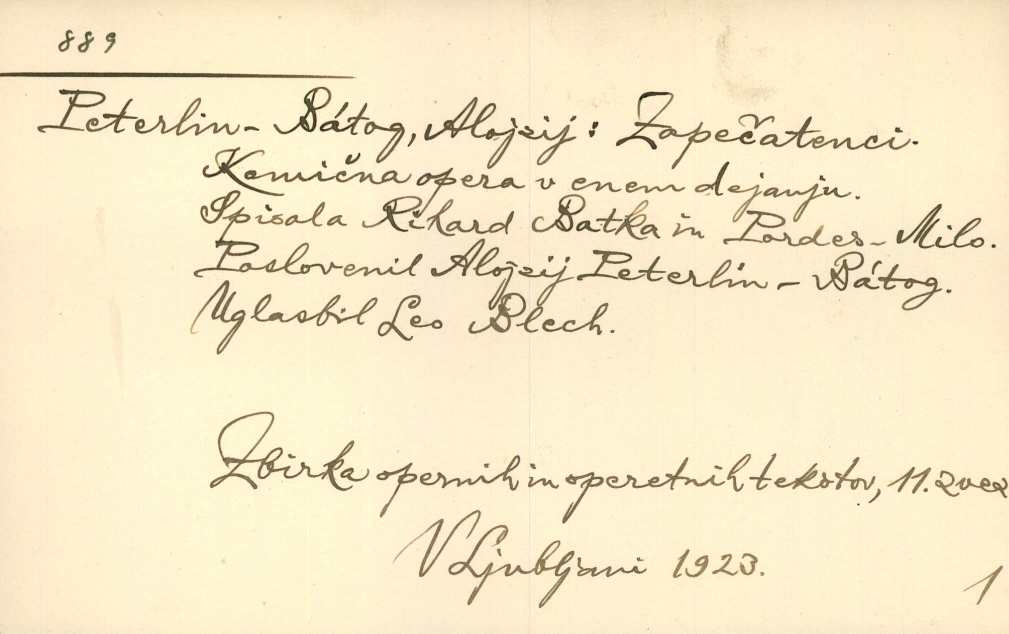 889
Peterlin - Bátog, Alojzij: Zapečatenci.
Komična opera v enem dejanju.
Spisala Rihard Batka in Pordes - Milo.
Poslovenil Alojzij Peterlin - Bátog.
Uglasbil Leo Blech.
Zbirka opernih in operetnih tekstov, 11. zvez
V Ljubljani 1923.
1